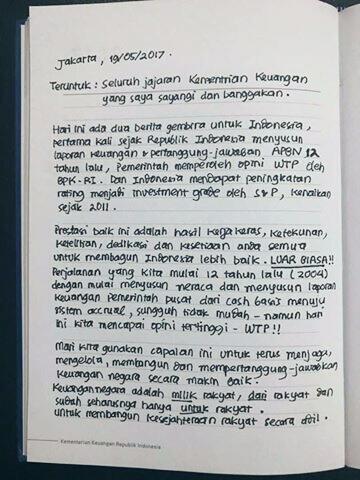 Jakarta, 19/05/2017.
Teruntuk : Seluruh jajaran Kementrian Keuangan
yang saya sayangi dan banggakan.
Hari ini ada dua berita gembira untuk Indonesia,
pertama kali sejak Republik Indonesia menyusun
laporan keuangan & pertanggung-jawaban APBN 12
tahun lalu, Pemerintah memperoleh opini WTP oleh
BPK-RI. Dan Indonesia mendapat peningkatan
rating menjadi investment grade oleh S&P, kenaikan
sejak 2011.
Prestasi baik ini adalah hasil kerja keras, ketekunan,
ketelitian, dedikasi dan kesetiaan anda semua
untuk membagun Indonesia lebih baik. LUAR BIASA!!
Perjalanan yang kita mulai 12 tahun lalu (2004)
dengan mulai menyusun neraca dan menyusun laporan
keuangan Pemerintah pusat dari cash basis menuju
sistem accrual, sungguh tidak mudah - namun hari
ini kita mencapai opini tertinggi - WTP!!
Mari kita gunakan capaian ini untuk terus menjaga,
mengelola, membangun dan mempertanggung-jawabkan
keuangan negara secara makin baik.
Keuangan negara adalah milik rakyat, dari rakyat dan
sudah seharusnya hanya untuk rakyat.
untuk membangun kesejahteraan rakyat secara adil.
Kementerian Keuangan Republik Indonesia